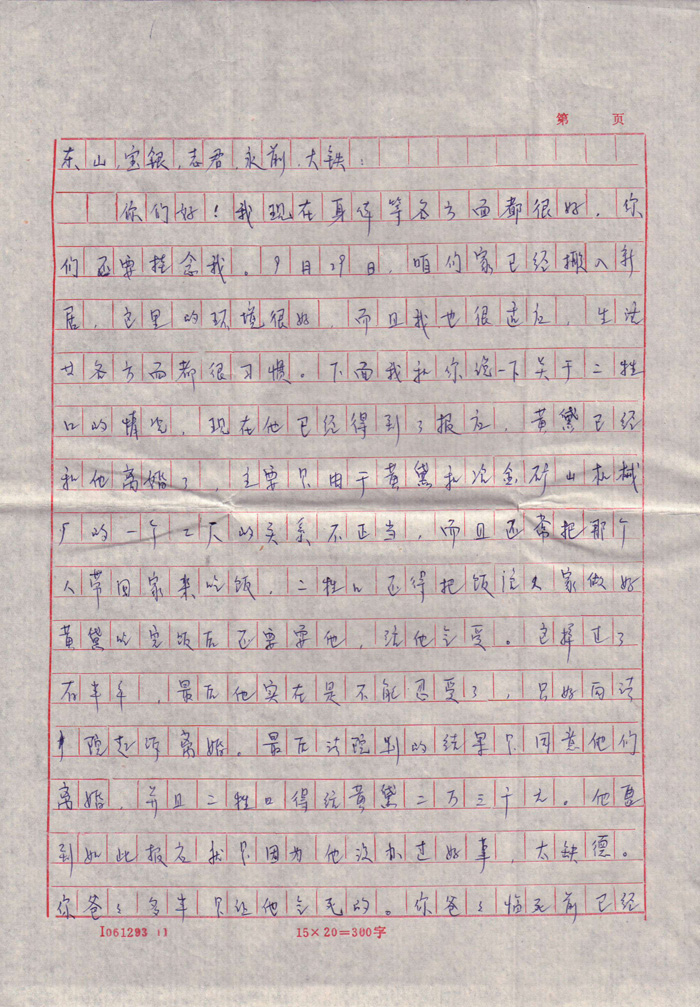 第 页
东山、宝银、志君、永前、大铁:
你们好!我现在身体等各方面都很好,你
们不要挂念我。9月29日,咱们家已经搬入新
居,这里的环境很好,而且我也很适应,生活
等各方面都很习惯。下面我和你说一下关于二牲
口的情况,现在他已经得到了报应,黄黛已经
和他离婚了,主要只由于黄黛和冶金矿山机械
厂的一个工人的关系不正当,而且还常把那个
人带回家来吃饭,二牲口还得把饭给人家做好
黄黛吃完饭后还要要他,让他受。这样过了
有半年,最后他实在是不能忍受了,只好向法
院起诉离婚。最后法院判的结果只同意他们
离婚,并且二牲口得给黄黛二万三千元。他遭
到如此报应我只因为他没办过好事,太缺德。
你爸爸多半只让他气死的。你爸爸临死前已经
I061293
15×20=300字